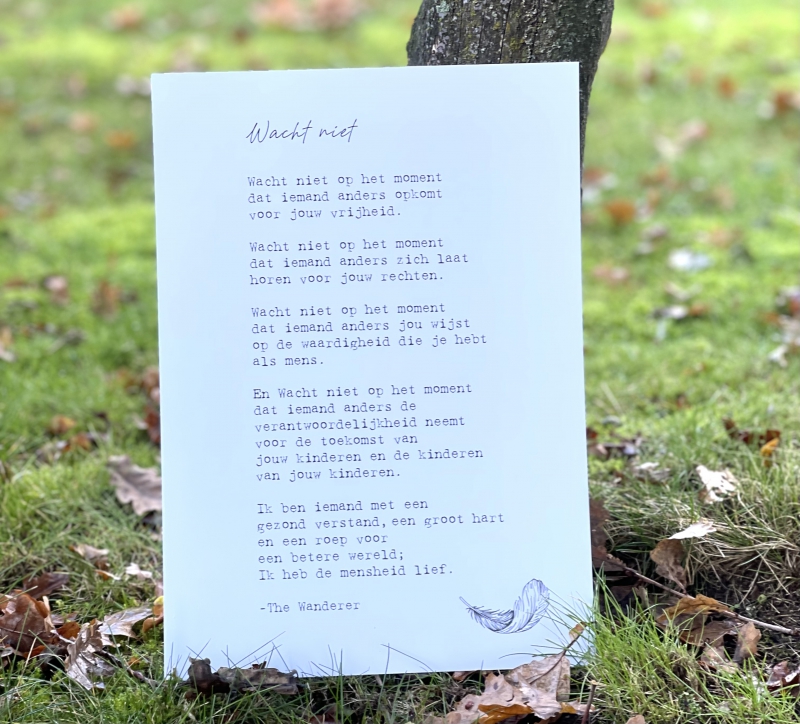 Wacht niet
Wacht niet op het moment
dat iemand anders opkomt
voor jouw vrijheid.
Wacht niet op het moment
dat iemand anders zich laat
horen voor jouw rechten.
Wacht niet op het moment
dat iemand anders jou wijst
op de waardigheid die je hebt
als mens.
En Wacht niet op het moment
dat iemand anders de
verantwoordelijkheid neemt
voor de toekomst van
jouw kinderen en de kinderen
van jouw kinderen.
Ik ben iemand met een
gezond verstand, een groot hart
en een roep voor
een betere wereld;
Ik heb de mensheid lief.
-The Wanderer